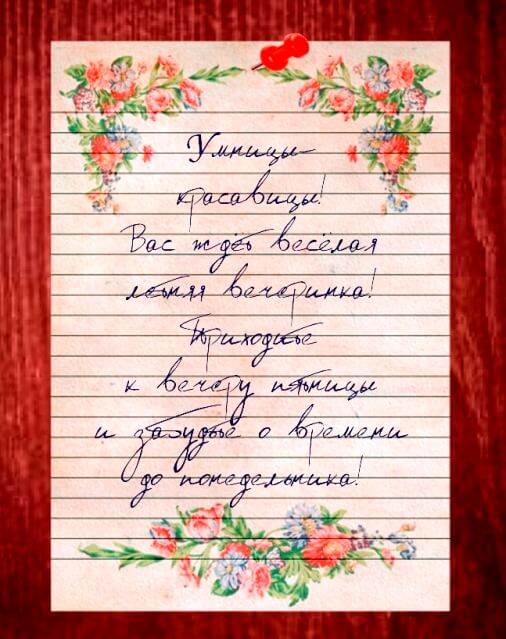 Умницы-
красавицы!
Вас ждёт весёлая
летняя вечеринка!
Приходите
к вечеру пятницы
и забудьте о времени
до понедельника!